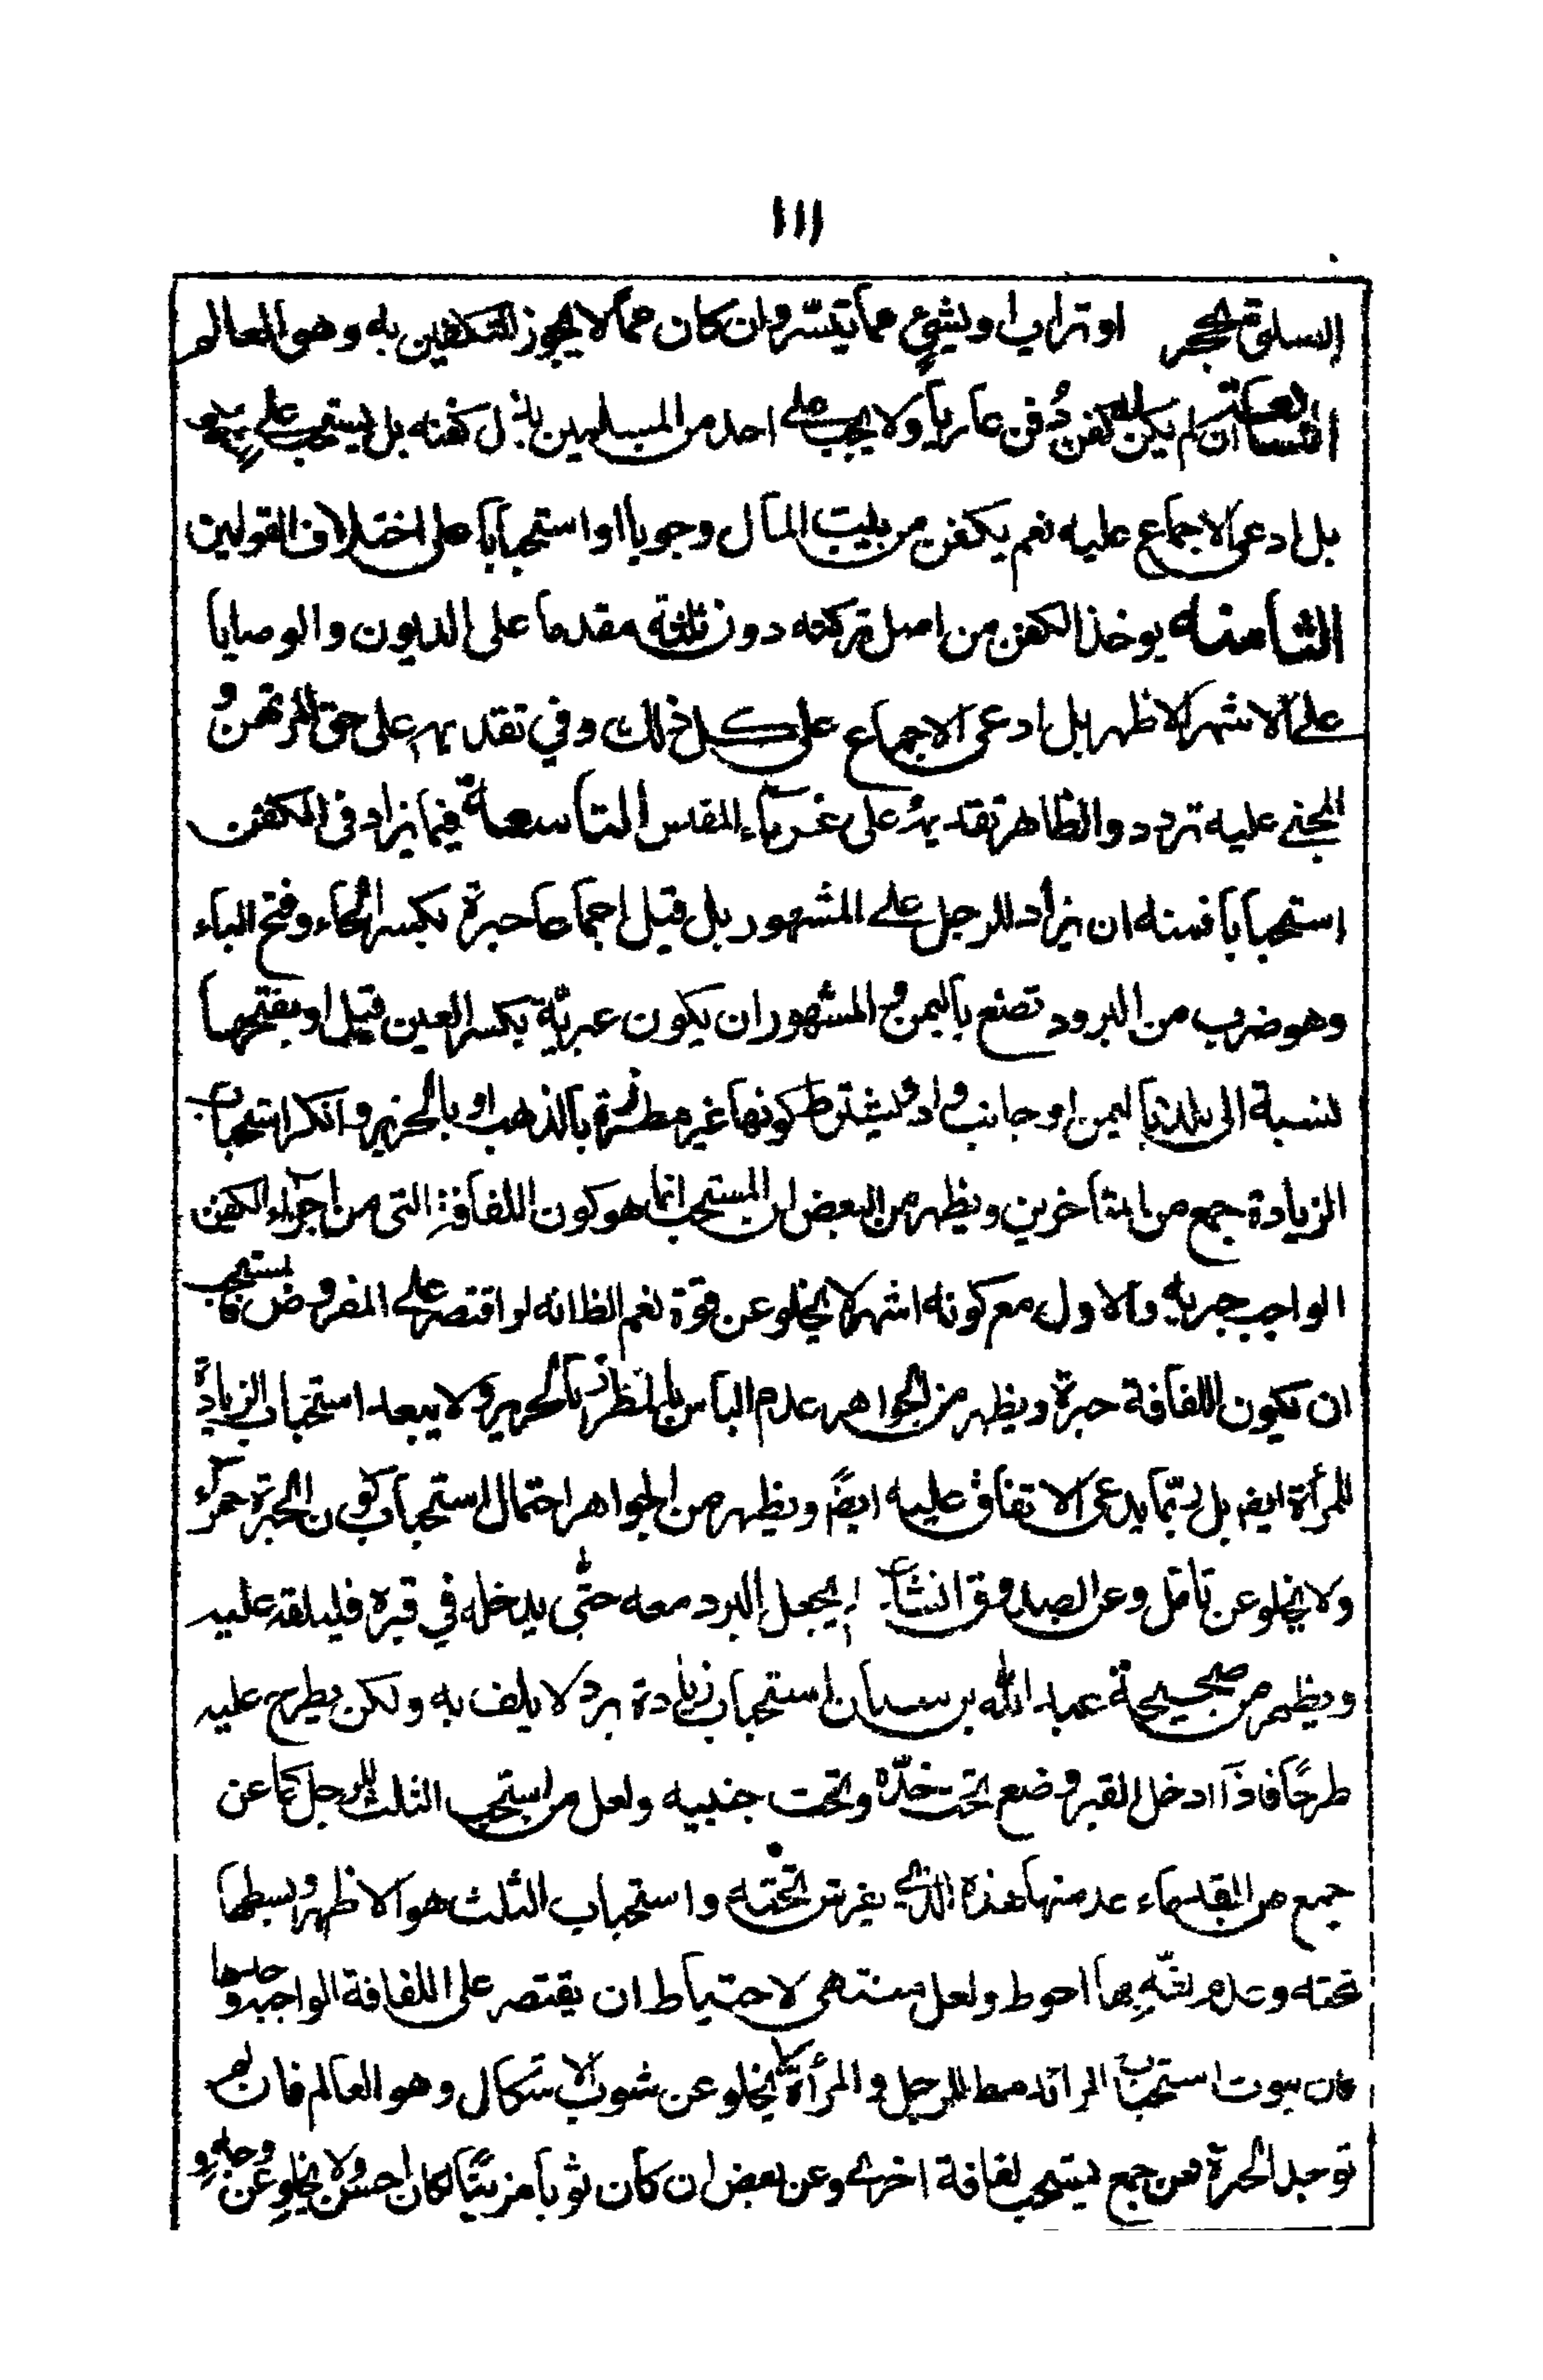 ١١١
السلق بحجر او تراب او بشيء مما يتستر وان كان مما لا يجوز التكفين به وهو العالم
السابعة ان لم يكن له كفن دفن عاريا ولا يجب على احد من المسلمين بذل كفنه بل يستحب على
بل ادعى الاجماع عليه نعم يكفن من بيت المال وجوبا او استحبابا على اختلاف القولين
الثامنه يوخذ الكفن من اصل تركته دون ثلثه مقدما على الديون والوصايا
على الاشهر الاظهر بل ادعى الاجماع على كل ذلك وفي تقديمه على حق المرتهن و
المجنى عليه تردد والظاهر تقديمه على غرماء المفلس التاسعة فيما يزاد فى الكفن
استحبابا فمنه ان يزاد للرجل على المشهور بل قيل اجماعا حبرة بكسر الحاء وفتح الباء
وهو ضرب من البرود تصنع باليمن والمشهور ان يكون عبرية بكسر العين قيل او بفتحها
نسبة الى بلد باليمن او جانب واد ويشترط كونها غير مطرزة بالذهب او بالحرير وانكر استحباب
الزيادة جمع من المتاخرين ويظهر من البعض ان المستحب انما هو كون اللفافة التى من اجزاء الكفن
الواجب حبرية والاول مع كونه اشهر لا يخلو عن قوة نعم الظ انه لو اقتصر على المفروض فا يستحب
ان يكون اللفافة حبرة ويظهر من الجواهر عدم الباس بالمطرز بالحرير ولا يبعد استحباب الزيادة
للمرأة ايضا بل ربما يدعى الاتفاق عليه ايضا ويظهر من الجواهر احتمال استحباب كون الحبرة حمراء
ولا يخلو عن تامل وعن الصدوق ان شاء لم يجعل البرد معه حتى يدخله في قبره فليلقه عليه
ويظهر من صحيحة عبد الله بن سنان استحباب زيادة برد لا يلف به ولكن يطرح عليه
طرحا فاذا ادخل القبر وضع تحت خده وتحت جنبيه ولعل من استحب الثلث للرجل كما عن
جمع من القدماء عد منها هذه الذي يفرش تحته واستحباب الثلث هو الاظهر وبسطها
تحته وعدم لفه بها احوط ولعل منتهى الاحتياط ان يقتصر على اللفافة الواجبة وحدها
فان ثبوت استحباب الزائد مط للرجل والمرأة لا يخلو عن شوب الاشكال وهو العالم فان لم
توجد الحبرة فعن جمع يستحب لفافة اخرى وعن بعض ان كان ثوبا مزينا كان احسن ولا يخلو عن وجه و